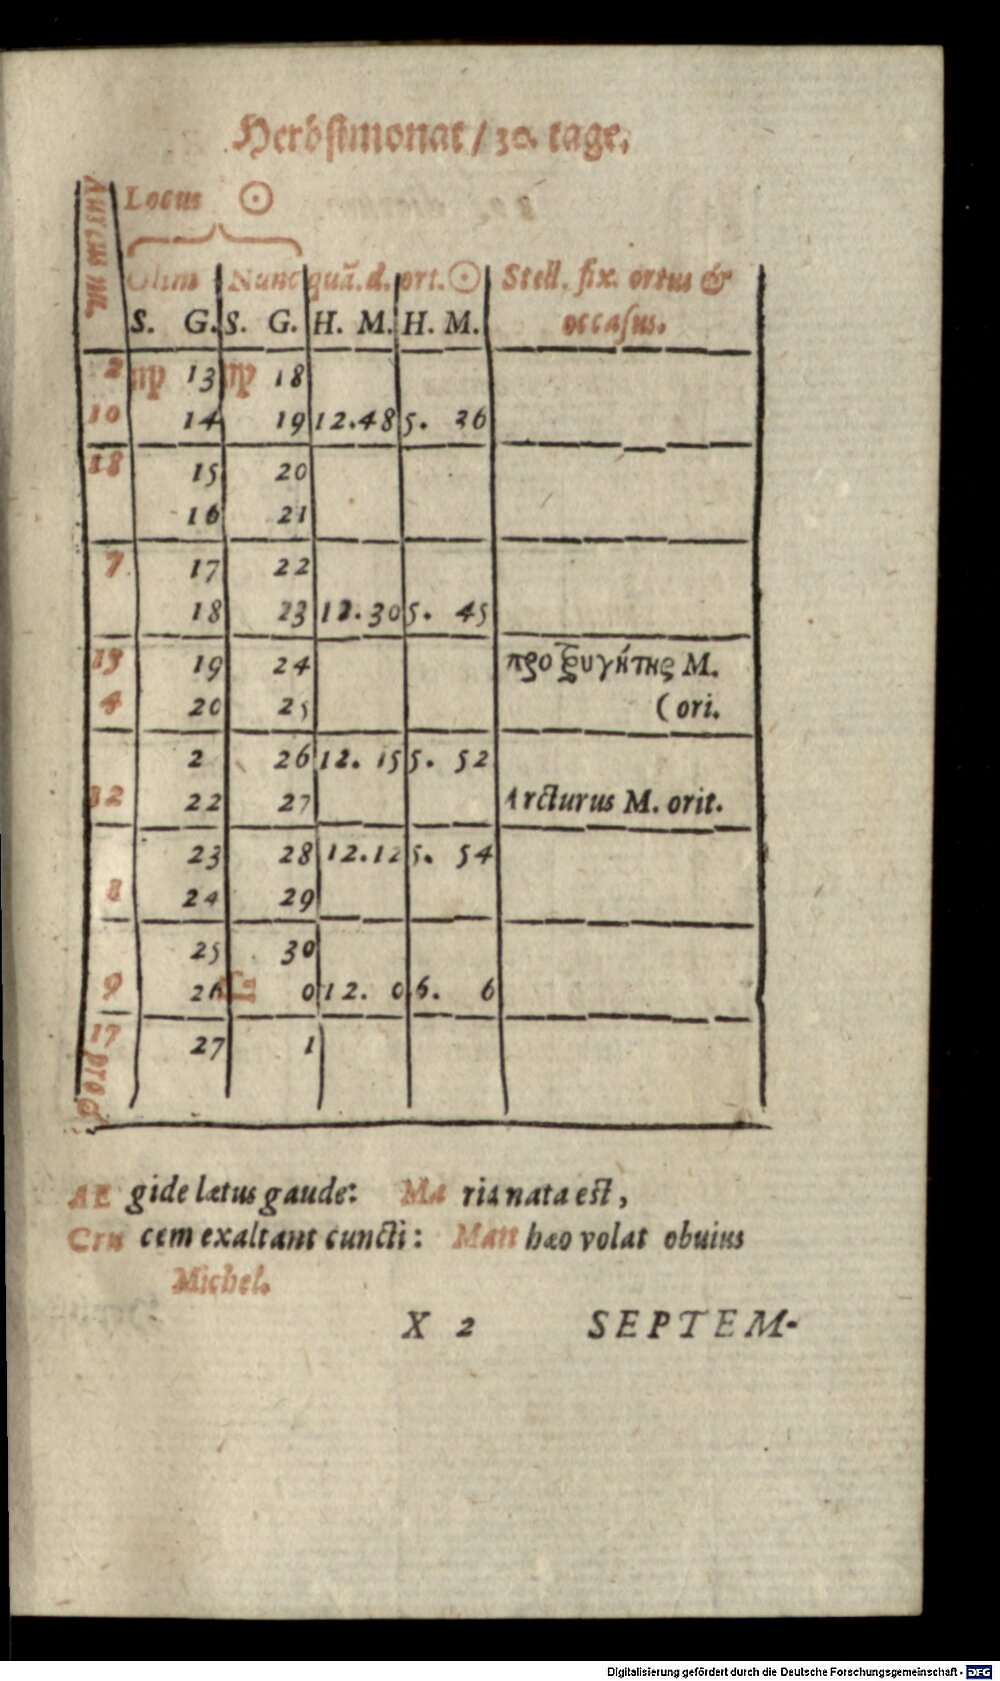 Herbstmonat / 30. tage.
Locus ☉
Aureus nu.
Olim Nunc quã.d. ort.☉ Stell. fix. ortus &
S. G. S. G. H. M. H. M. occasus.
2 ♍ 13 ♍ 18
10 14 19 12.48 5. 36
18 15 20
16 21
7 17 22
18 23 12.30 5. 45
15 19 24 προξυγητης M.
4 20 25 (ori.
2 26 12. 15 5. 52
12 22 27 Arcturus M. orit.
23 28 12.12 5. 54
1 24 29
25 30
9 26 ♎ 0 12. 0 6. 6
17 27 1
AE gide lætus gaude: Ma ria nata est,
Cru cem exaltant cuncti: Matt hæo volat obuius
Michel.
X 2 SEPTEM-
Digitalisierung gefördert durch die Deutsche Forschungsgemeinschaft - DFG